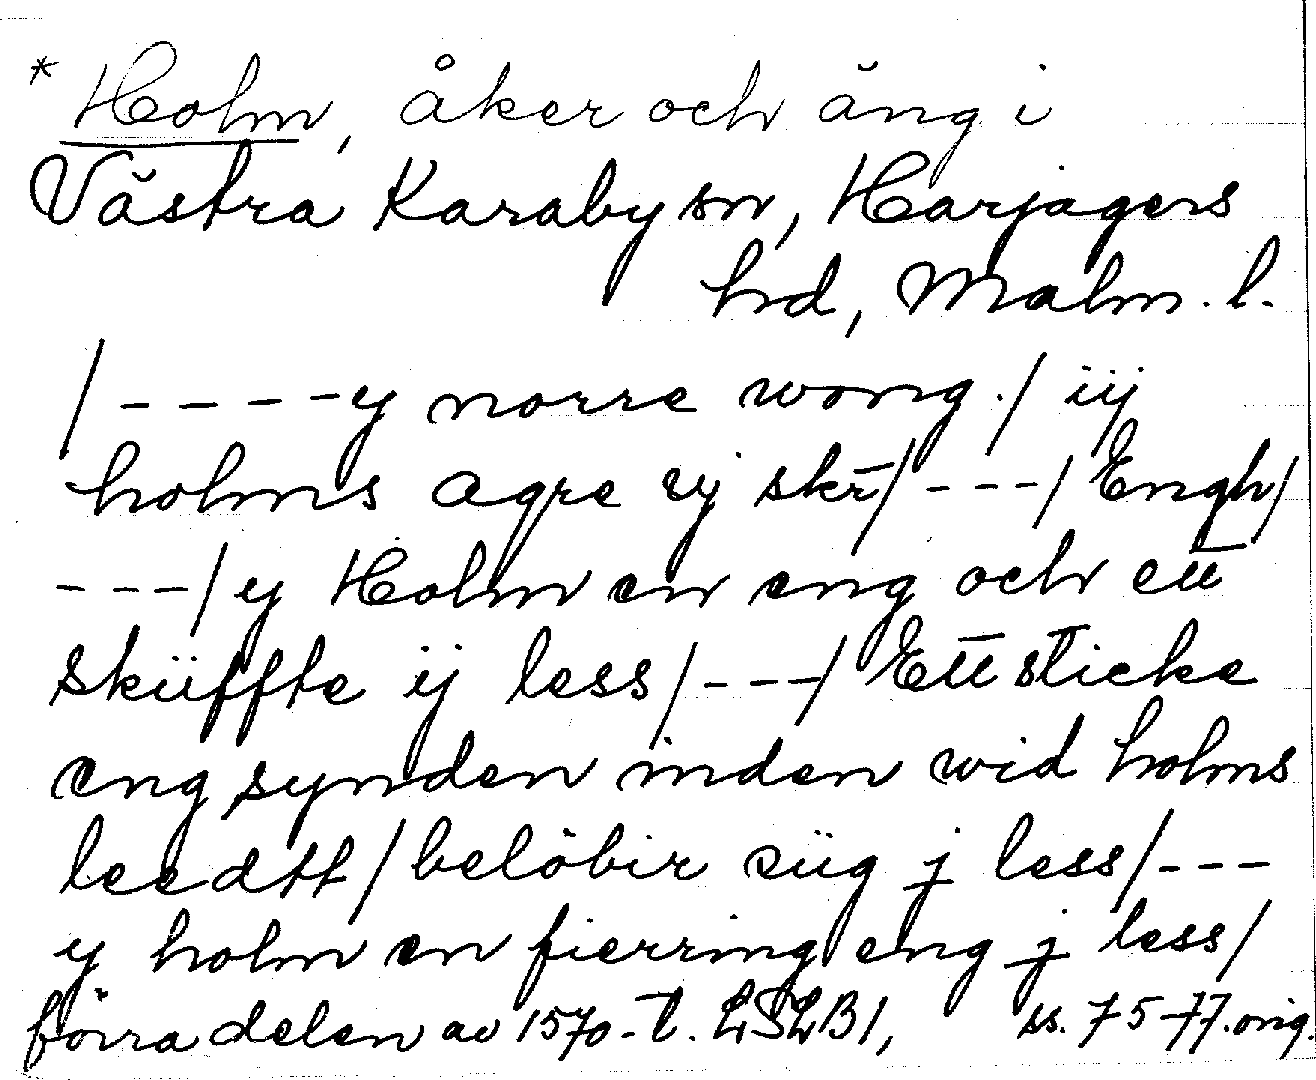 * Holm, åker och äng i
Västra Karaby sn, Harjagers
hd, Malm. l.
/ - - - - y norre wong./ iij
holms agre vj skr̄/ - - - / Engh/
- - - / y Holm en eng och ett
sküffte ij less/ - - - / Ett sticke
eng synden inden wid holms
leedtt / belöbir süg j less/ - - -
y holm en fierring eng j less/
förra delen av 1570-t. LSLB1, ss. 75-77. orig.